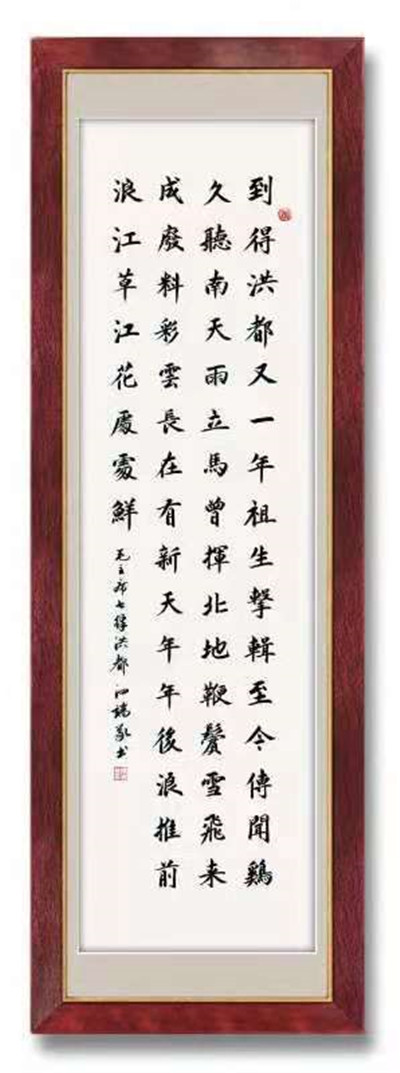 到得洪都又一年祖生擊輯至今傳聞鷄
久聽南天雨立馬曾揮北地鞭鬢雪飛来
成廢料彩雲長在有新天年年後浪推前
浪江草江花處處鮮
毛主席七律洪都